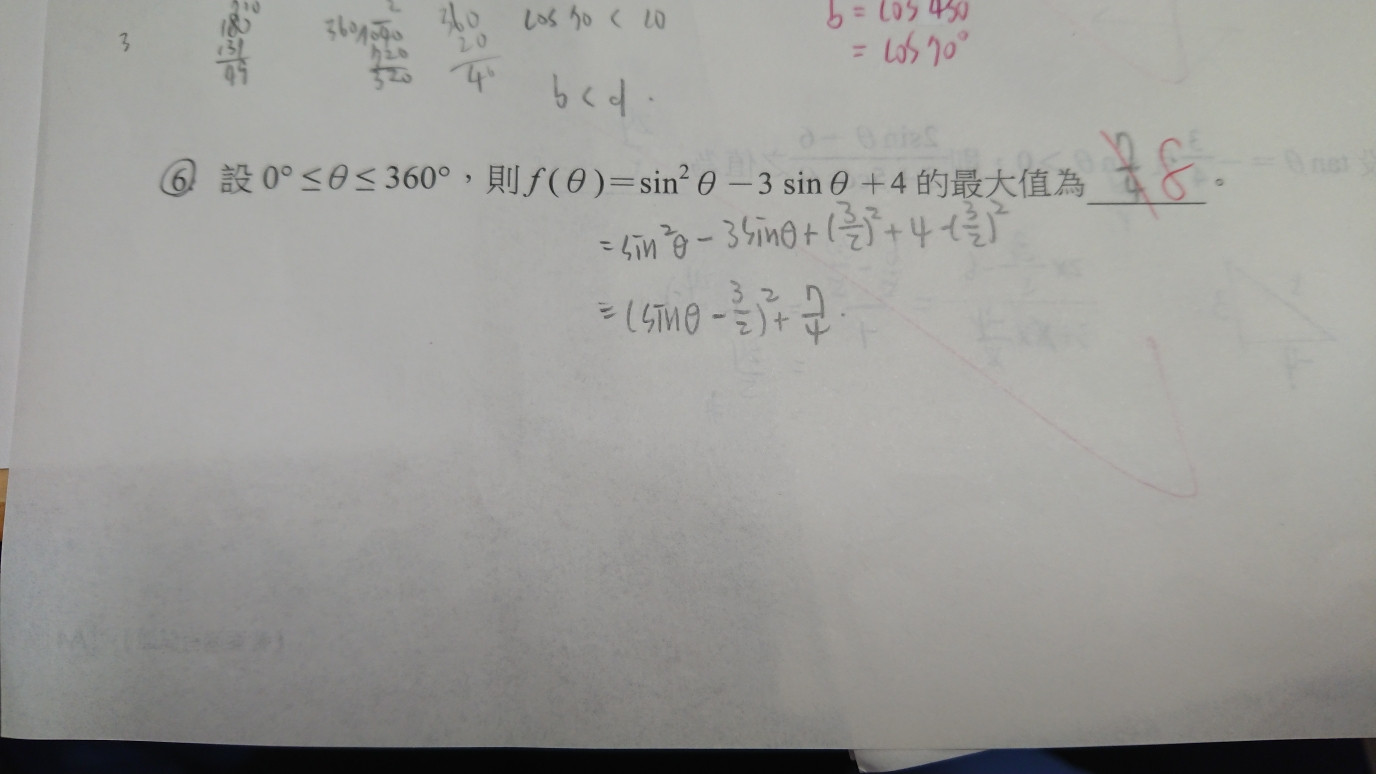 3
180
131
49
360
1040
720
320
360
20
cos 70 < 10
b < d .
b = cos 430
= cos 70°
6. 設 0° ≤ θ ≤ 360°,則 f(θ)=sin²θ −3 sin θ +4 的最大值為 7/4 8 。
= sin²θ − 3sinθ + (3/2)² + 4 − (3/2)²
= (sinθ − 3/2)² + 7/4 .